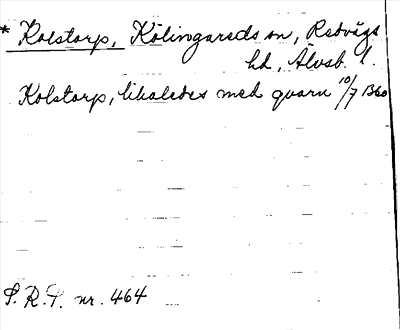 * Kolstorp, Kölingareds sn, Redvägs
hd, Älvsb. l.
Kolstorp, likaledes med qvarn 10/7 1360
S.R.P. nr. 464